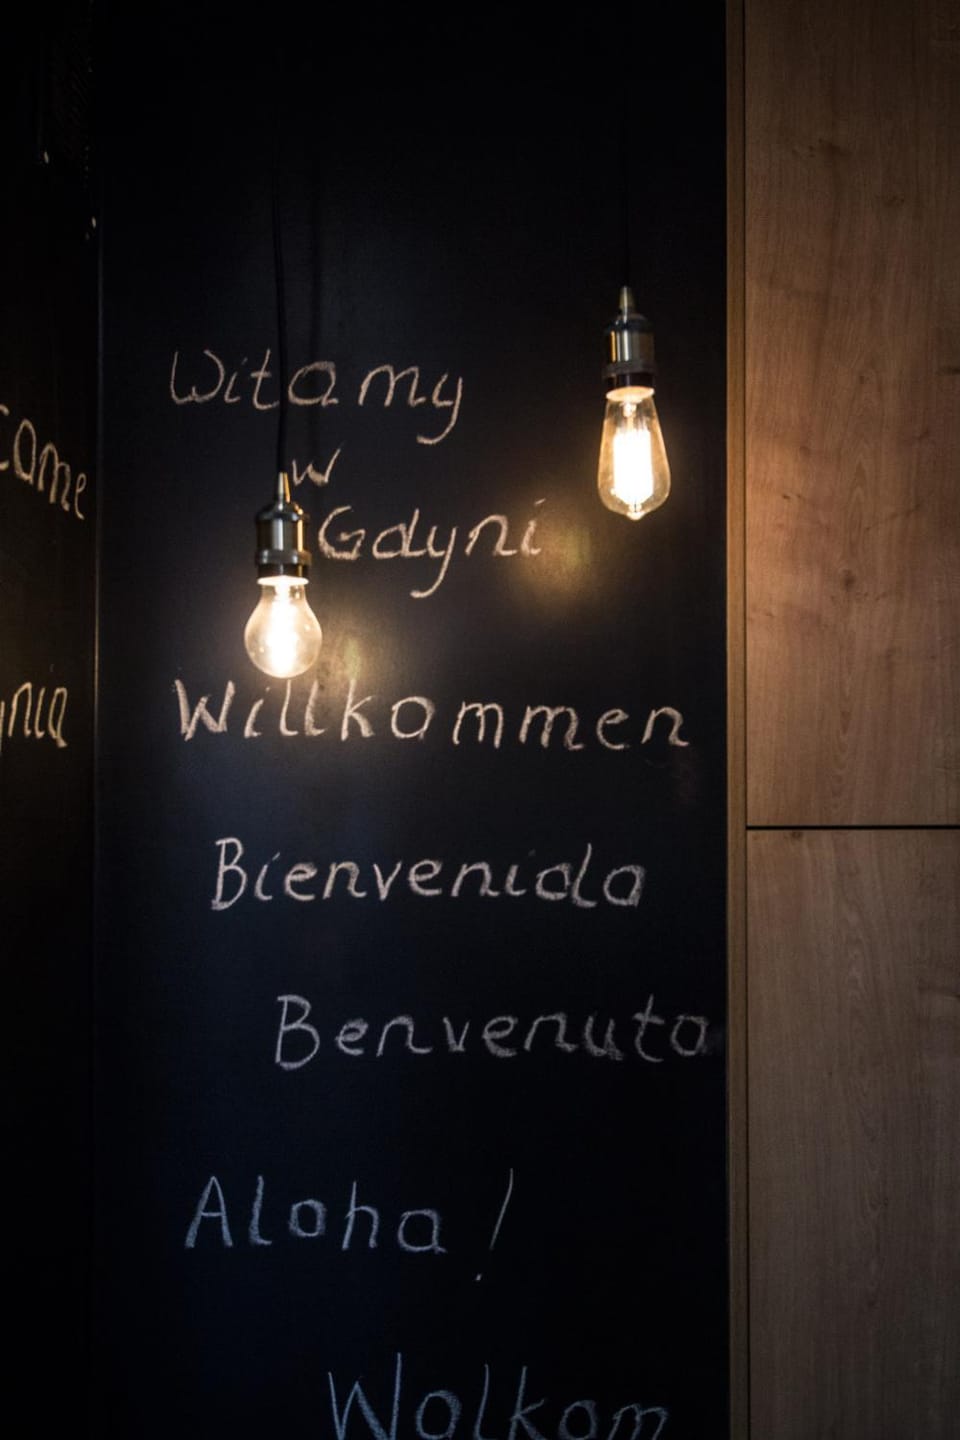 come
ynia
Witamy
w
Gdyni
Willkommen
Bienvenida
Benvenuto
Aloha!
Wolkom